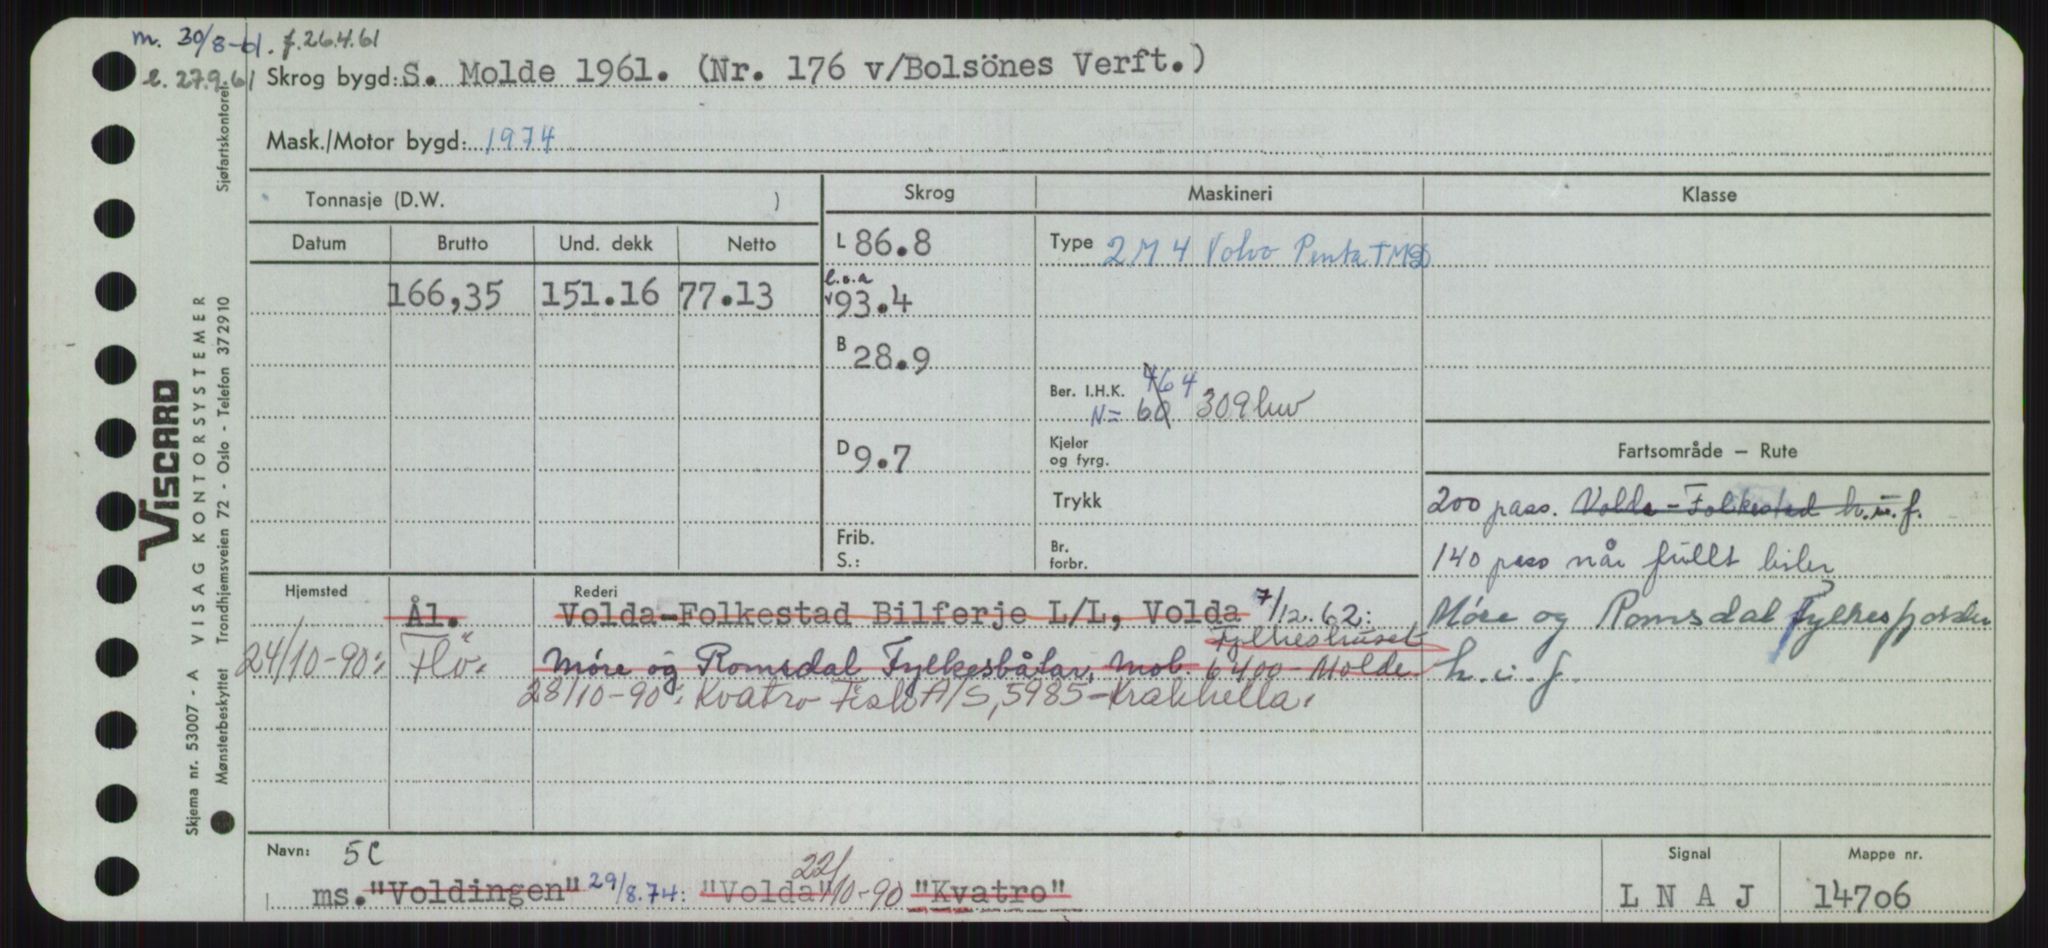 m. 30/8-61. f. 26.4.61
l. 27.9.61
Skrog bygd: S. Molde 1961. (Nr. 176 v/Bolsönes Verft.)
Mask./Motor bygd: 1974
Tonnasje (D.W. )
Skrog
Maskineri
Klasse
Datum
Brutto
Und. dekk
Netto
166,35
151.16
77.13
L 86.8
l.o.a
93.4
B 28.9
D 9.7
Frib.
S.:
Type 2 M 4 Volvo Penta
Ber. I.H.K. 464
N= 60 309 hw
Kjeler
og fyrg.
Trykk
Br.
forbr.
Fartsområde – Rute
200 pass. Volda-Folkestad h.i.f.
140 pass når fullt biler
Møre og Romsdal Fylke
h.i.f.
Hjemsted
Rederi
Ål.
Volda-Folkestad Bilferje L/L, Volda 7/12.62:
Fylkeshuset
24/10-90: Flv.
Møre og Romsdal Fylkesbåtar, Mob. 6400-Molde
28/10-90: Kvatro Fisk A/S, 5985-Krakhella.
Navn: 5C
ms. "Voldingen" 29/8.74: "Volda" 22/10-90 "Kvatro"
Signal
L N A J
Mappe nr.
14706
VISCARD
VISAG KONTORSYSTEMER
Sjøfartskontoret
Skjema nr. 53007 - A
Mønsterbeskyttet Trondhjemsveien 72 - Oslo - Telefon 372910